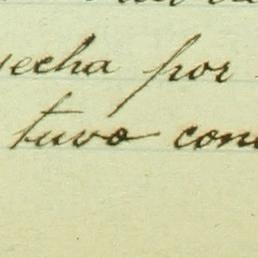 echa por
tuvo con